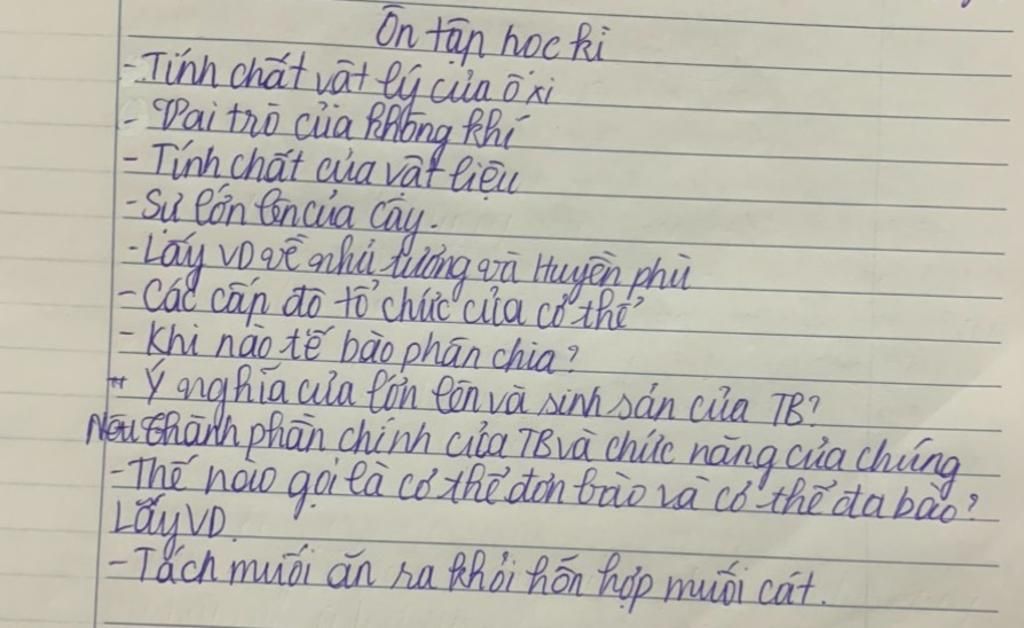 Ôn tập học kì
- Tính chất vật lý của ôxi
- Vai trò của không khí
- Tính chất của vật liệu
- Sự lớn lên của cây.
- Lấy VD về nhũ tương và Huyền phù
- Các cấp độ tổ chức của cơ thể
- Khi nào tế bào phân chia?
- Ý nghĩa của lớn lên và sinh sản của TB?
Nêu thành phần chính của TB và chức năng của chúng
- Thế nào gọi là cơ thể đơn bào và cơ thể đa bào?
Lấy VD.
- Tách muối ăn ra khỏi hỗn hợp muối cát.